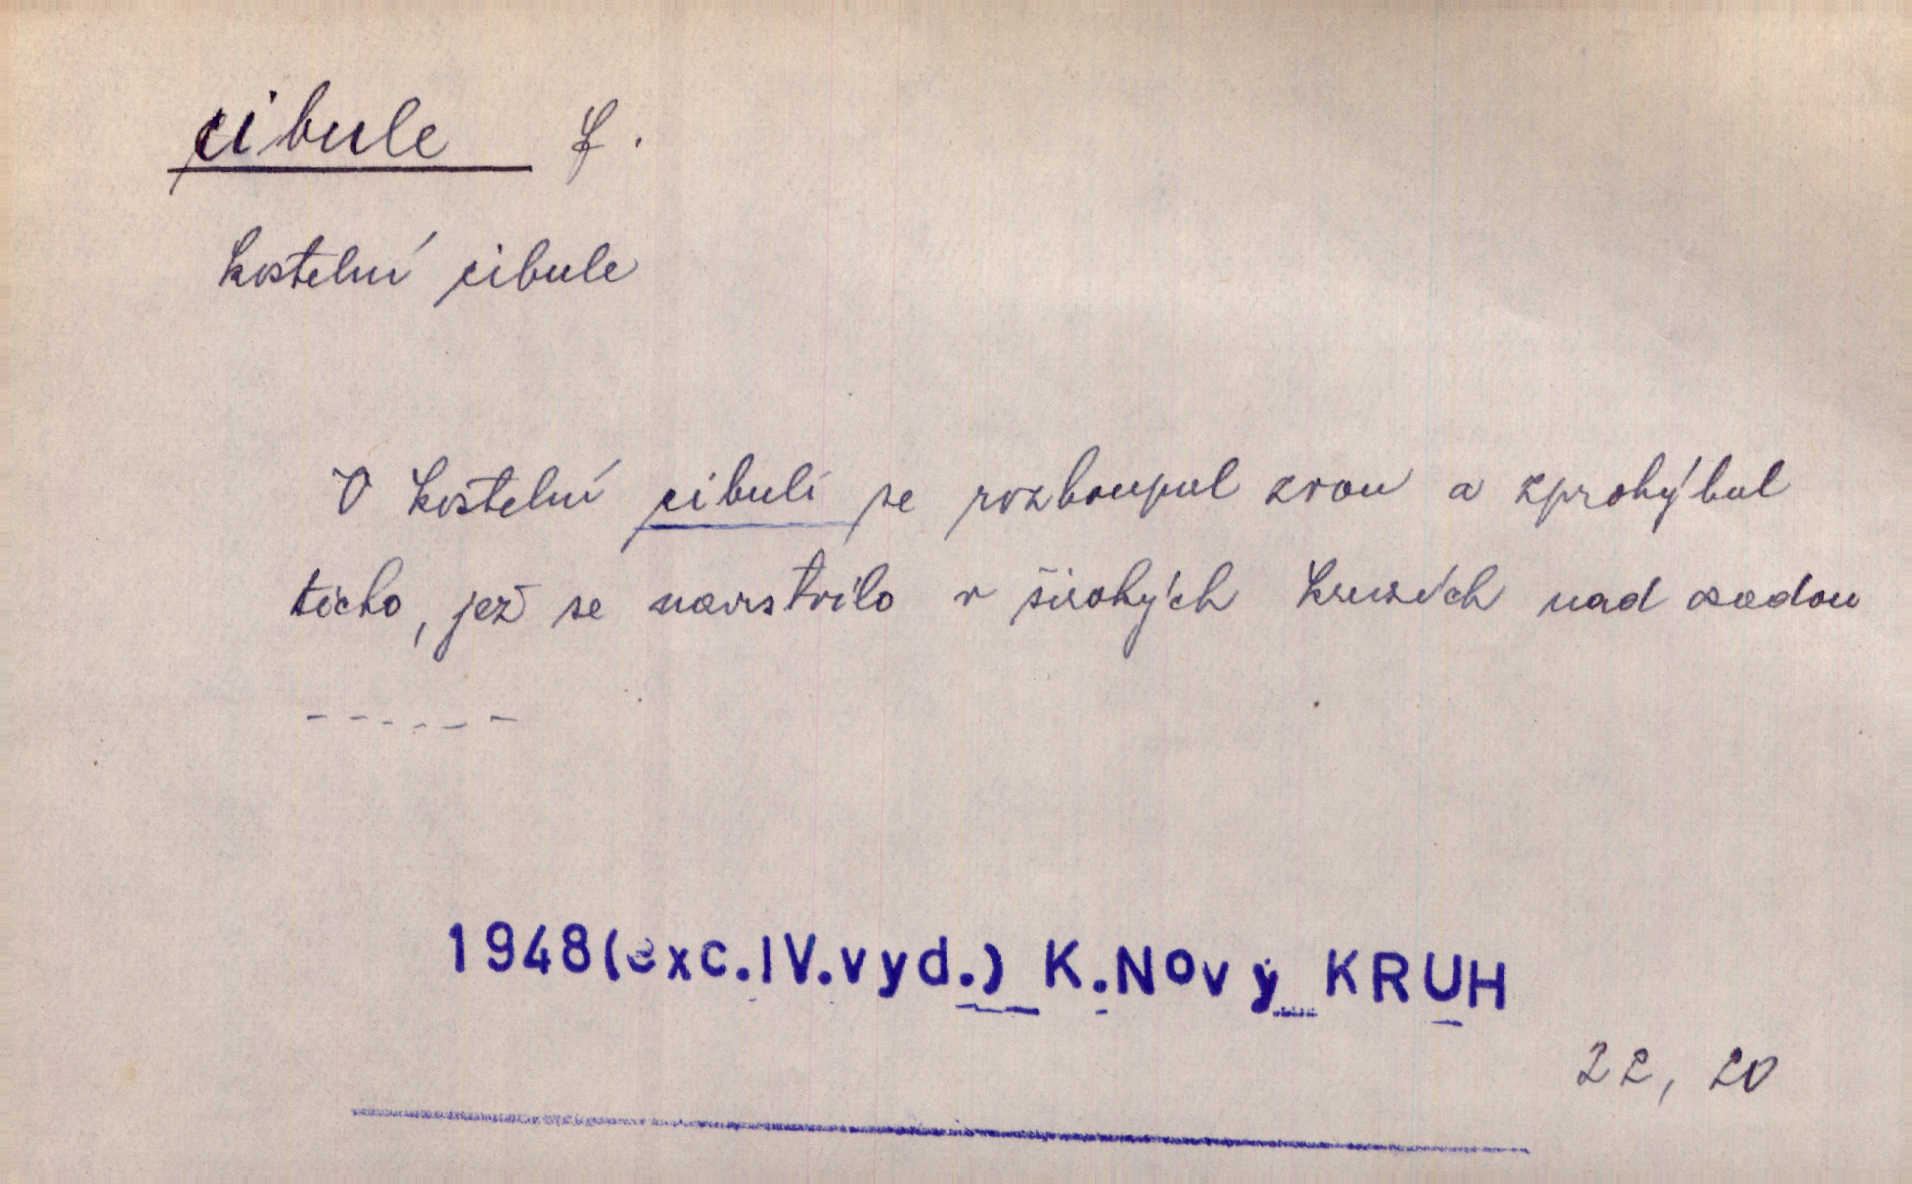 cibule f.
kostelní cibule
V kostelní cibuli se rozhoupal zvon a zprohýbal
ticho, jež se navrstvilo v širokých kruzích nad osadou
- - - - - -
1948(exc.IV.vyd.) K.Nový KRUH
22, 20